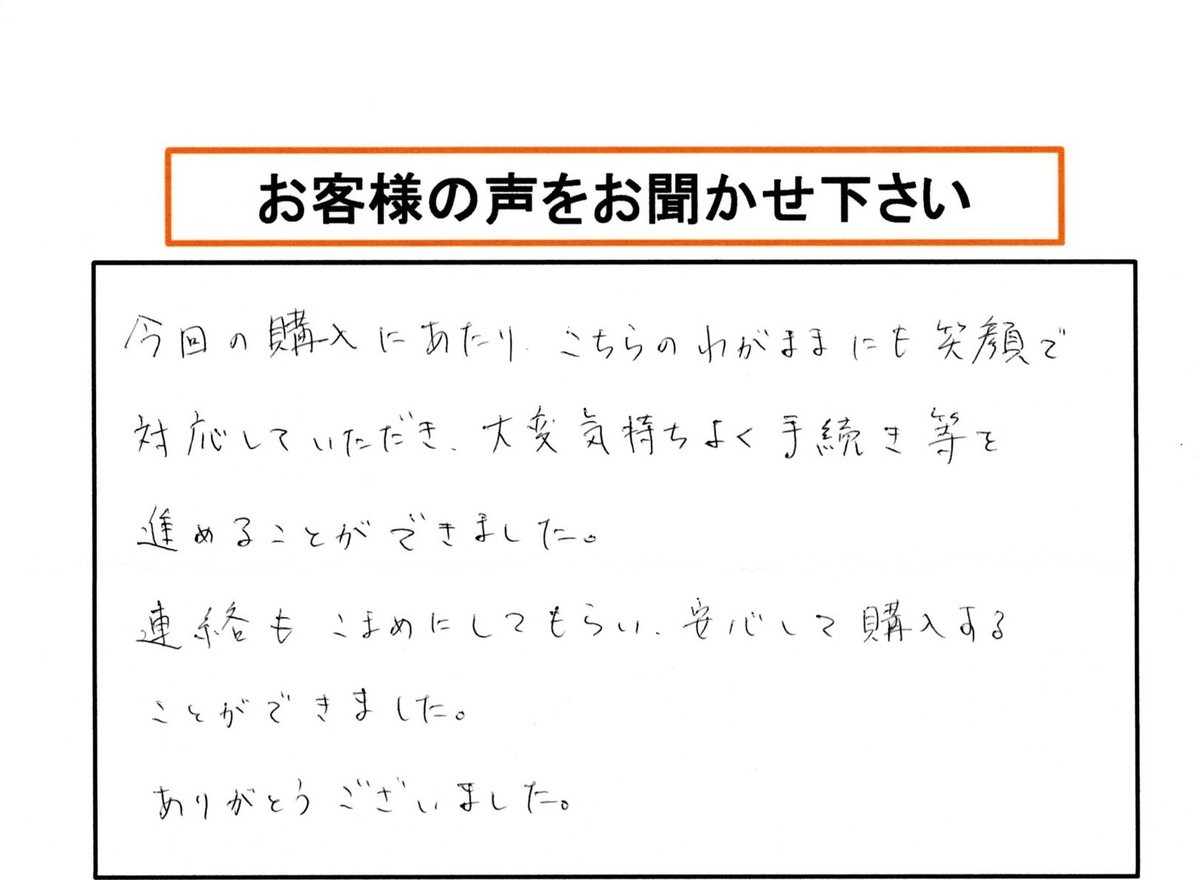 お客様の声をお聞かせ下さい
今回の購入にあたり、こちらのわがままにも笑顔で
対応していただき、大変気持ちよく手続き等を
進めることができました。
連絡もこまめにしてもらい、安心して購入する
ことができました。
ありがとうございました。